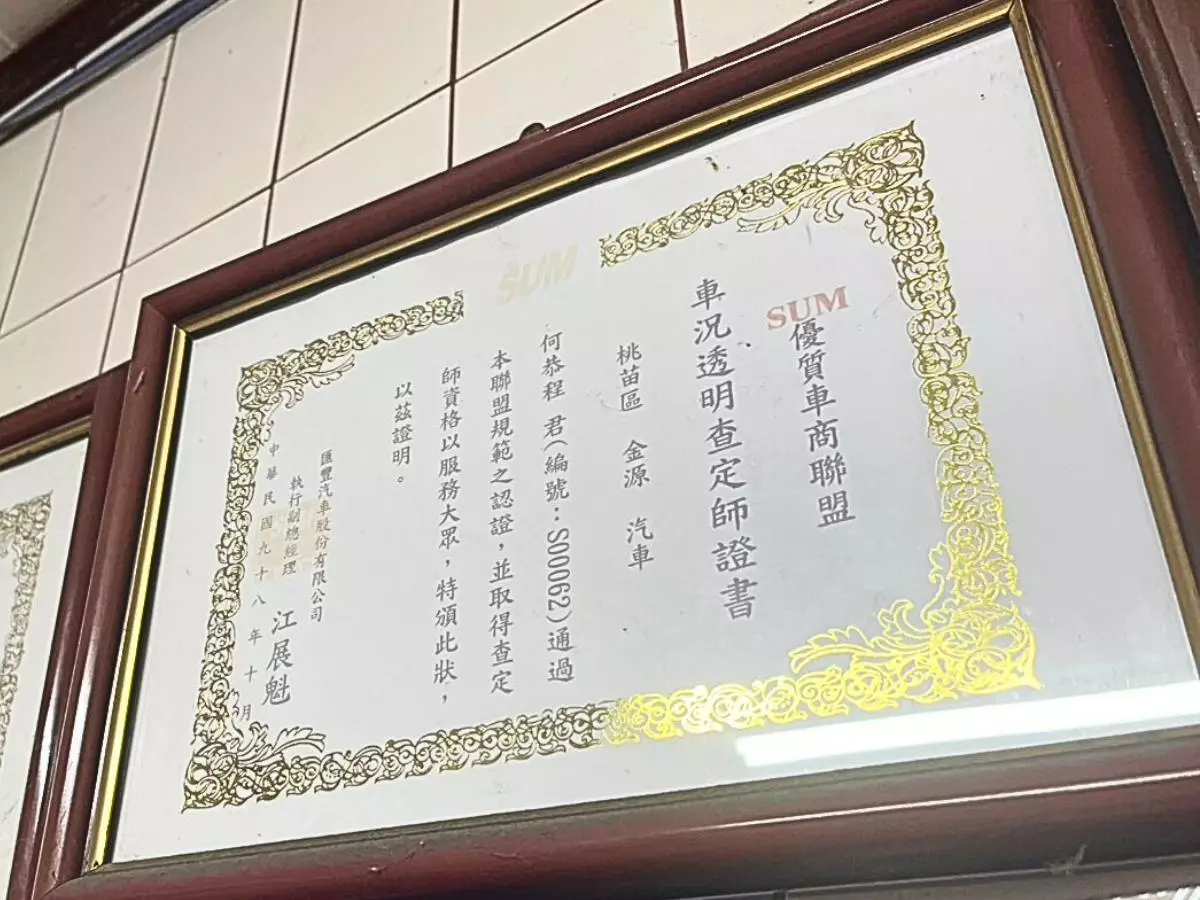 SUM
SUM優質車商聯盟
車況透明查定師證書
桃苗區 金源 汽車
何恭程 君(編號:S00062)通過
本聯盟規範之認證,並取得查定
師資格以服務大眾,特頒此狀,
以茲證明。
匯豐汽車股份有限公司
執行副總經理 江展魁
中華民國九十八年十月